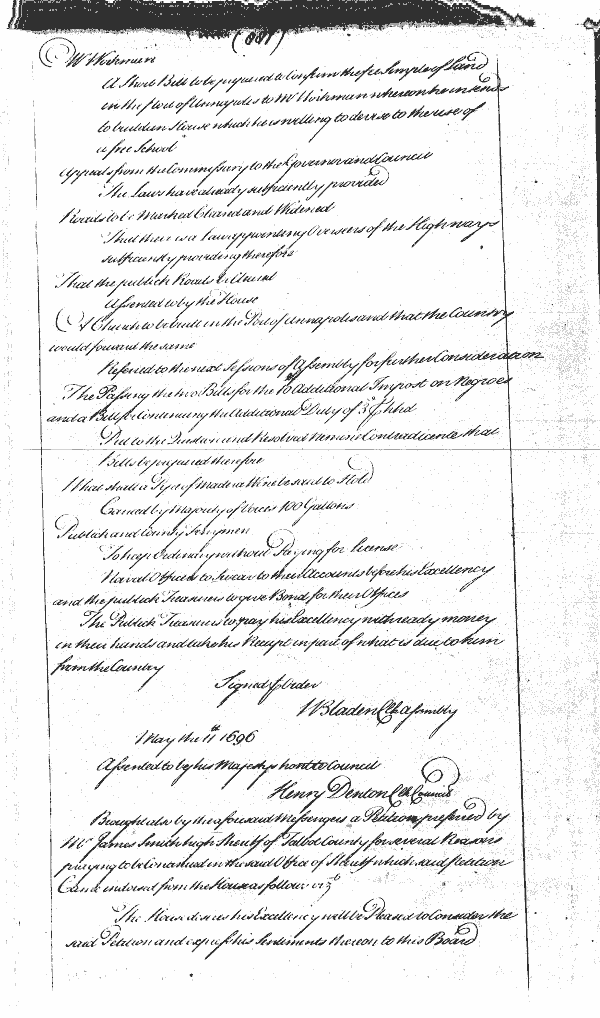 (881)
Mr Workman
A Short Bill to be prepared to Confirm the fee Simple of Land
in the Port of Annapolis to Mr Workman whereon he intends
to build an House which he is willing to devise to the use of
a free School
Appeals from the Commissary to the Governor and Council
The Laws have already sufficiently provided
Roads to be Marked Cleared and Widened
That there is a Law appointing Overseers of the Highways
sufficiently providing therefore
That the publick Roads be
Assented to by the House
A Church to be built in the Port of Annapolis and that the Country
would forward the same
Referred to the next Sessions of Assembly for further Consideration
The Passing the two Bills for the Additional Impost on Negroes
and a Bill for Continuing the Additional Duty of 3d hhd
Put to the Question and Resolved Nemine Contradicente that
Bills be prepared therefore
What shall a Pipe of Madera Wine be said to Hold
Carried by Majority of Voices 100 Gallons
Publick and County Ferrymen
To keep Ordinary without Paying for License
Naval Officers to Swear to their Accounts before his Excellency
and the publick Treasurers to give Bond for their Offices
The Publick Treasurers to pay his Excellency with ready money
in their hands and take his Receipt in part of what is due to him
from the Country
Signed p Order
W Bladen Clk Assembly
May the 11th 1696
Assented to by his Majestys honble Council
Henry Denton Clk Council
Brought also by the aforesaid Messengers a Petition preferred by
Mr James Smith high Sheriff of Talbot County for several Reasons
praying to be Continued in the said Office of Sheriff which said Petition
Came endorsed from the House as follows vizt
The House desires his Excellency will be Pleased to Consider the
said Petition and express his Sentiments thereon to this Board